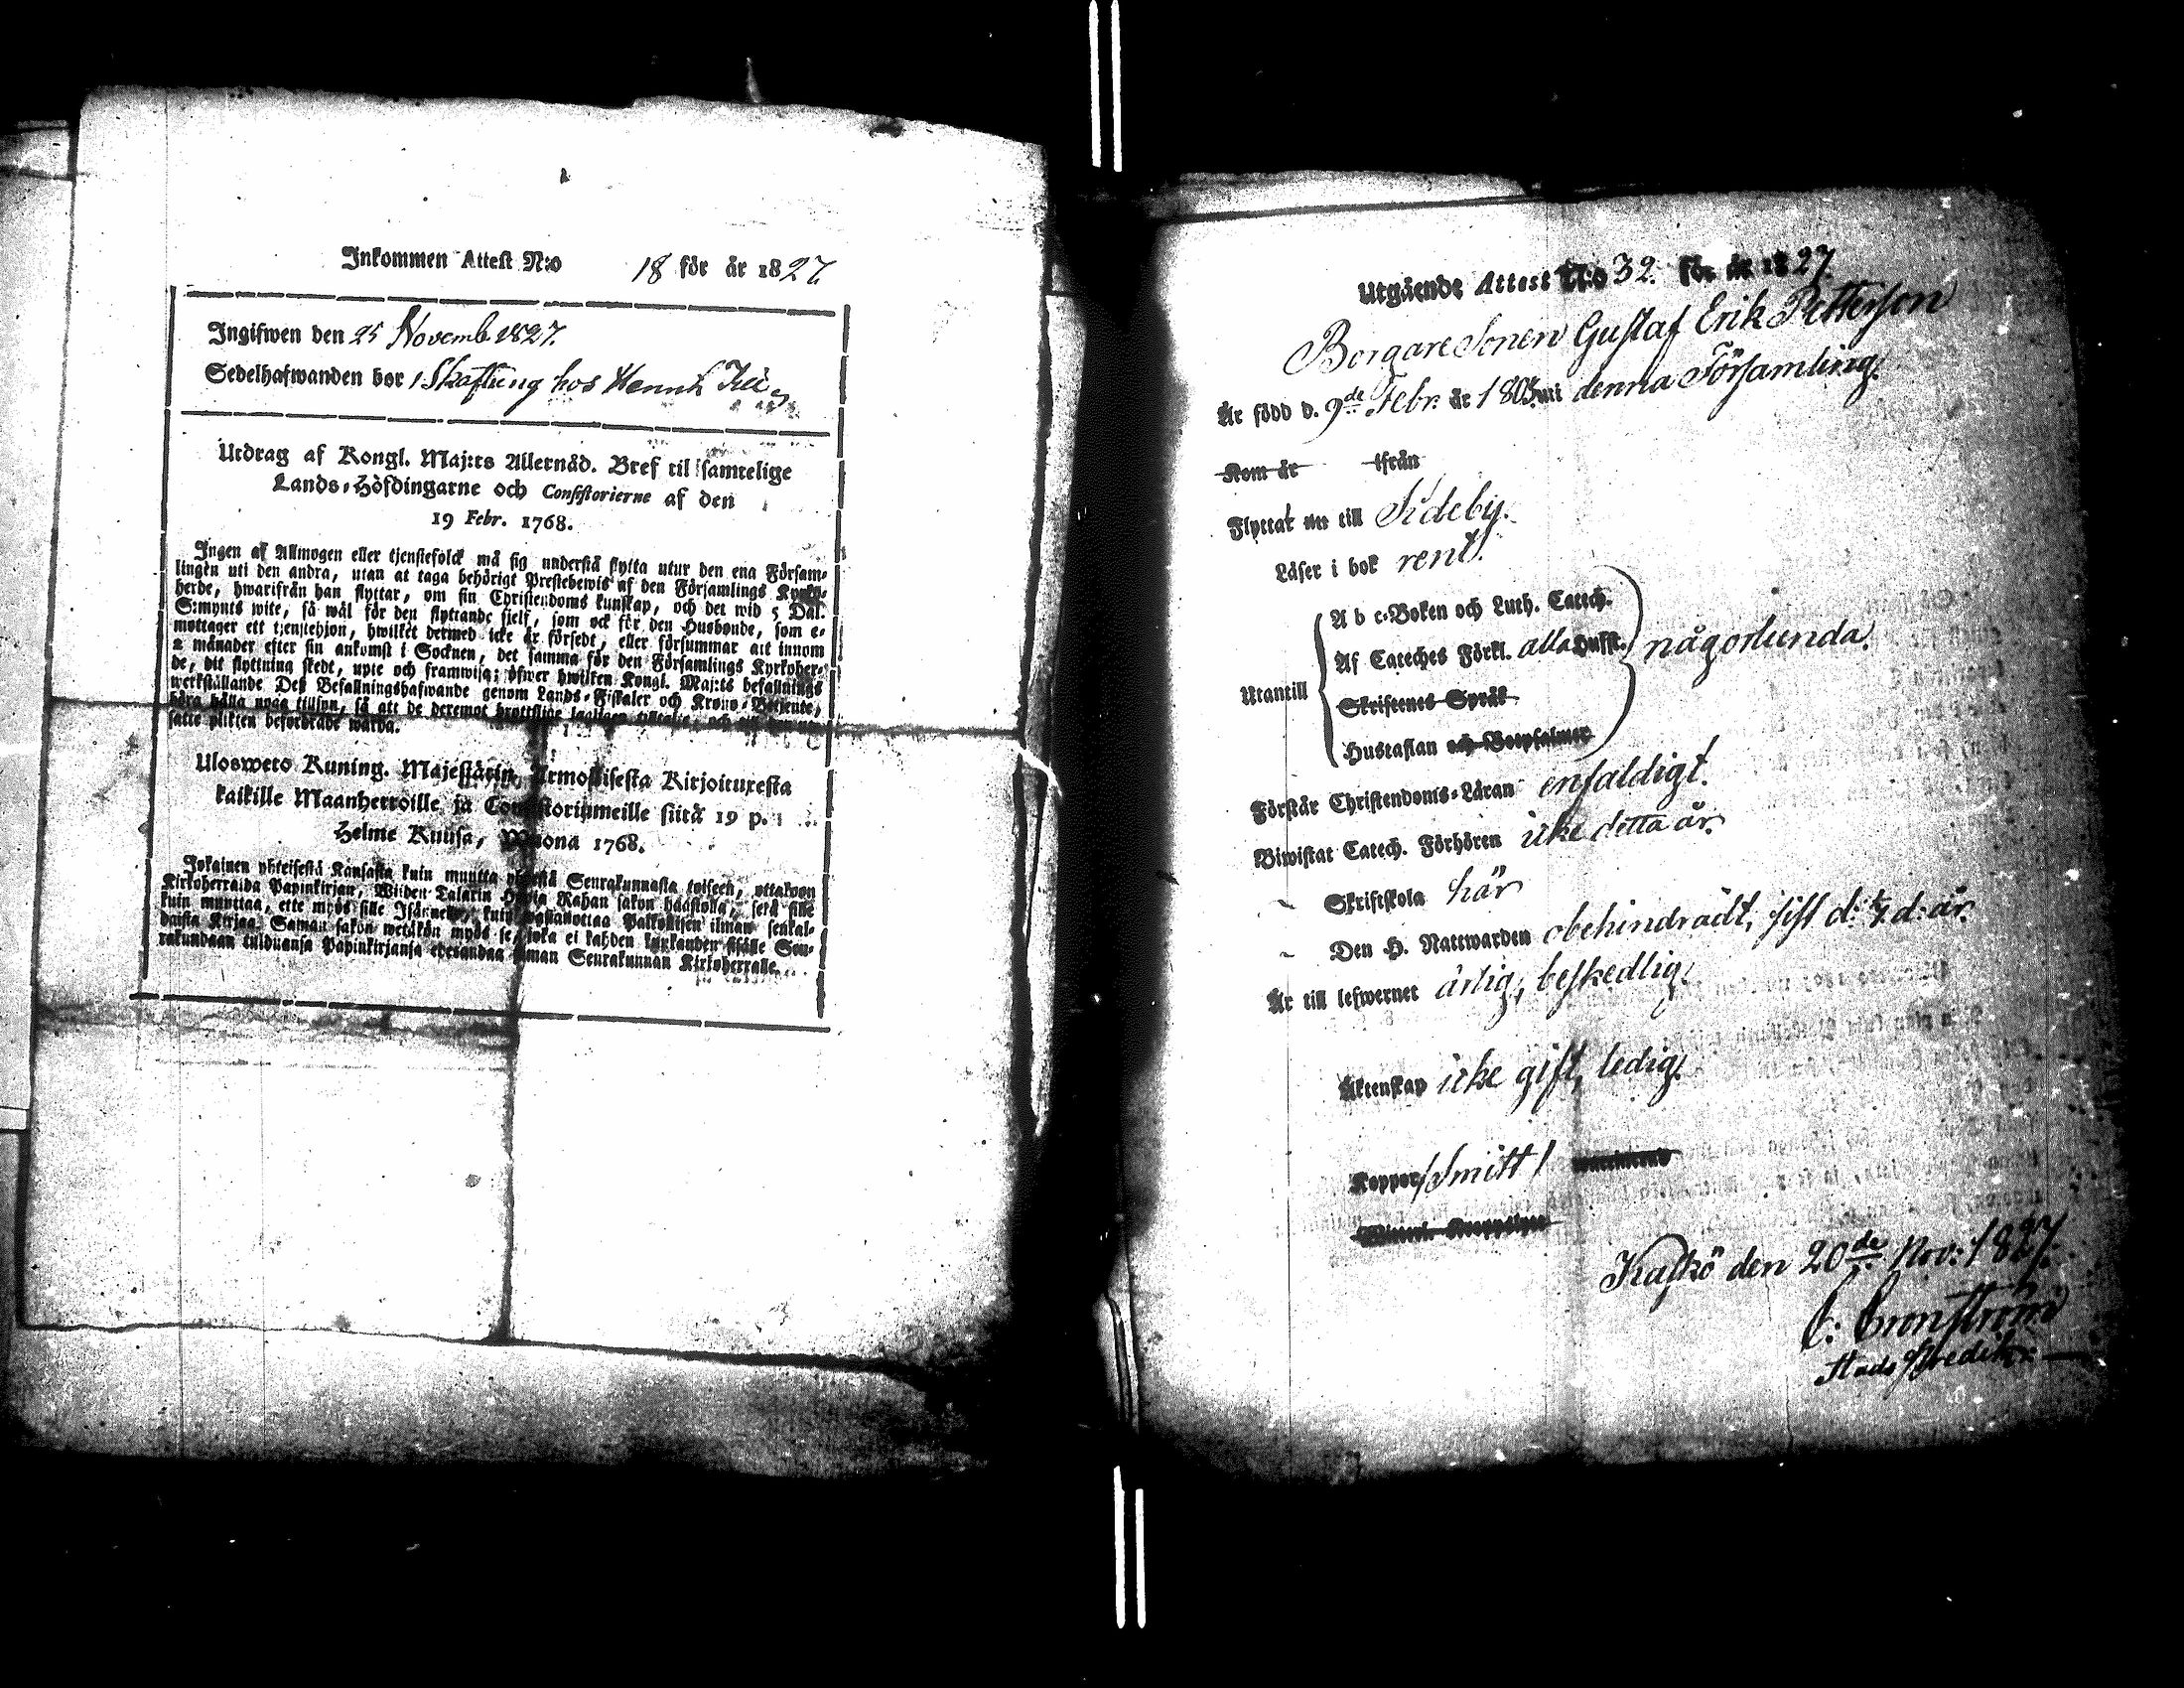 Inkommen Attest N:o 18 för år 1827.
Ingifwen den 25 Novemb 1827.
Sedelhafwanden bor i Skaftung hos Henrik
Utdrag af Kongl. Maj:ts Allernåd. Bref til samtelige
Lands-Höfdingarne och Consistorierne af den
19 Febr. 1768.
Ingen af Allmogen eller tjenstefolck må sig understå flytta utur den ena Försam-
lingen uti den andra, utan at taga behörigt Prestebewis af den Församlings Kyrko-
herde, hwarifrån han flyttar, om sin Christendoms kunskap, och det wid 5 Dal.
S:mynts wite, så wäl för den flyttande sielf, som ock för den Husbonde, som e-
mottager ett tjenstehjon, hwilket dermed icke är försedt, eller försummar att innom
2 månader efter sin ankomst i Socknen, det samma för den Församlings Kyrkoher-
de, dit flyttning skedt, upte och framwisa; öfwer hwilken Kongl. Maj:ts befallnings
werkställande Des Befallningshafwande genom Lands-Fiskaler och Krono-Betjente,
böra hålla noga tillsyn, så att de deremot brottslige lagligen tilltalas, och
satte plikten befordrade warda.
Uloswero Kuning. Majestärin Armollisesta Kirjoituxesta
kaikille Maanherroille ja Consistoriumeille siitä 19 p.
Helme Kuusa, Wuona 1768.
Jokainen yhteisestä Kansasta kuin muutta yhdestä Seurakunnasta toiseen, ottakoon
Kirkoherralda Papinkirjan, Wiiden Talarin Hopia Rahan sakon haastolla, sekä sille
kuin muuttaa, ette myös sille Isännelle, kuin wastanottaa Palkollisen ilman senkal-
daista Kirjaa. Saman sakon wetäkön myös se, joka ei kahden kuukauden sisälle Seu-
rakundaan tulduansa Papinkirjansa edesandaa saman Seurakunnan Kirkoherralle.
Utgående Attest N:o 32. för år 1827.
Borgare Sonen Gustaf Erik Petterson
Är född d. 9de Febr. år 1803 uti denna Församling.
Kom år ifrån
Flyttat nu till Sideby.
Läser i bok rent.
A b c-Boken och Luth. Catech.
Af Cateches Förkl. alla Hufst. någorlunda.
Utantill
Skriftenes Språk
Hustaflan och Botpsalmer
Förstår Christendoms-Läran enfaldigt.
Biwistat Catech. Förhören icke detta år.
~ Skriftskola här
~ Den H. Nattwarden obehindradt, sist d: d: år.
Är till lefwernet ärlig, beskedlig.
Äktenskap icke gift, ledig.
Koppor /Smitt/
Kaskö den 20de Nov: 1827.
C: Cronström
Stads Predik: